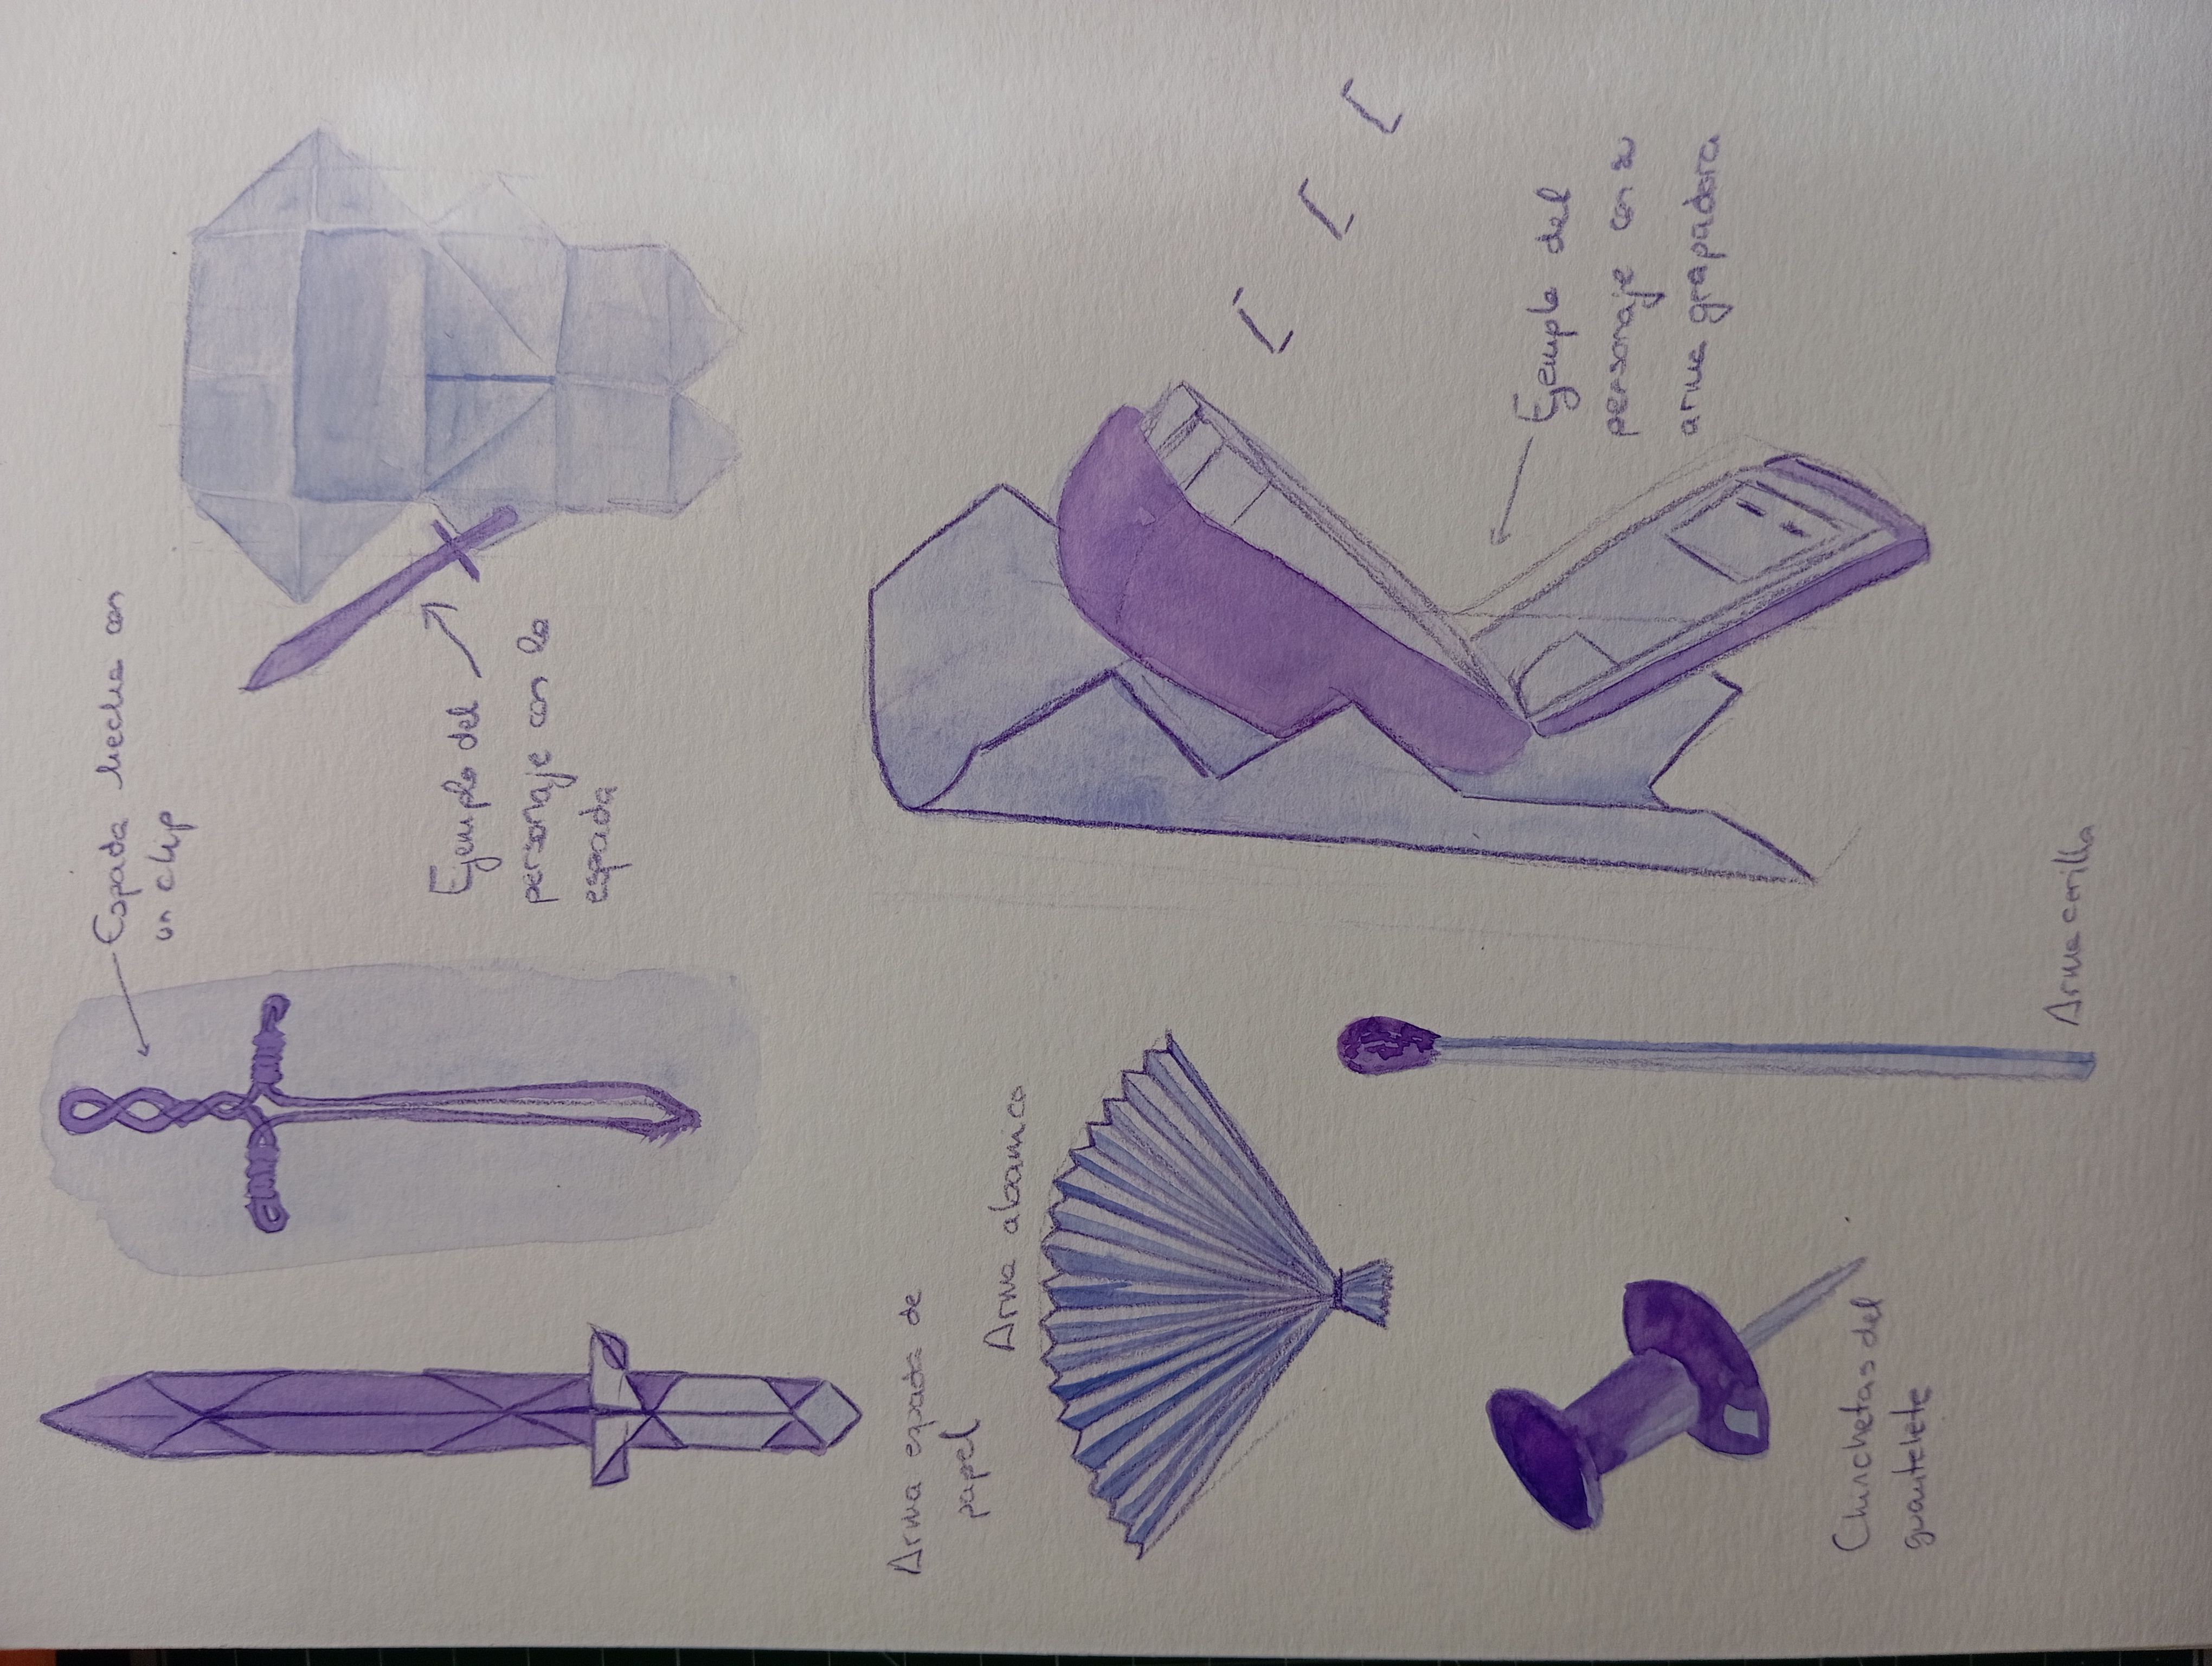 Espada hecha con
un clip
Ejemplo del
personaje con la
espada
Arma espada de
papel
Arma abanico
Ejemplo del
personaje con su
arma grapadora
Chinchetas del
guantelete
Arma cerilla